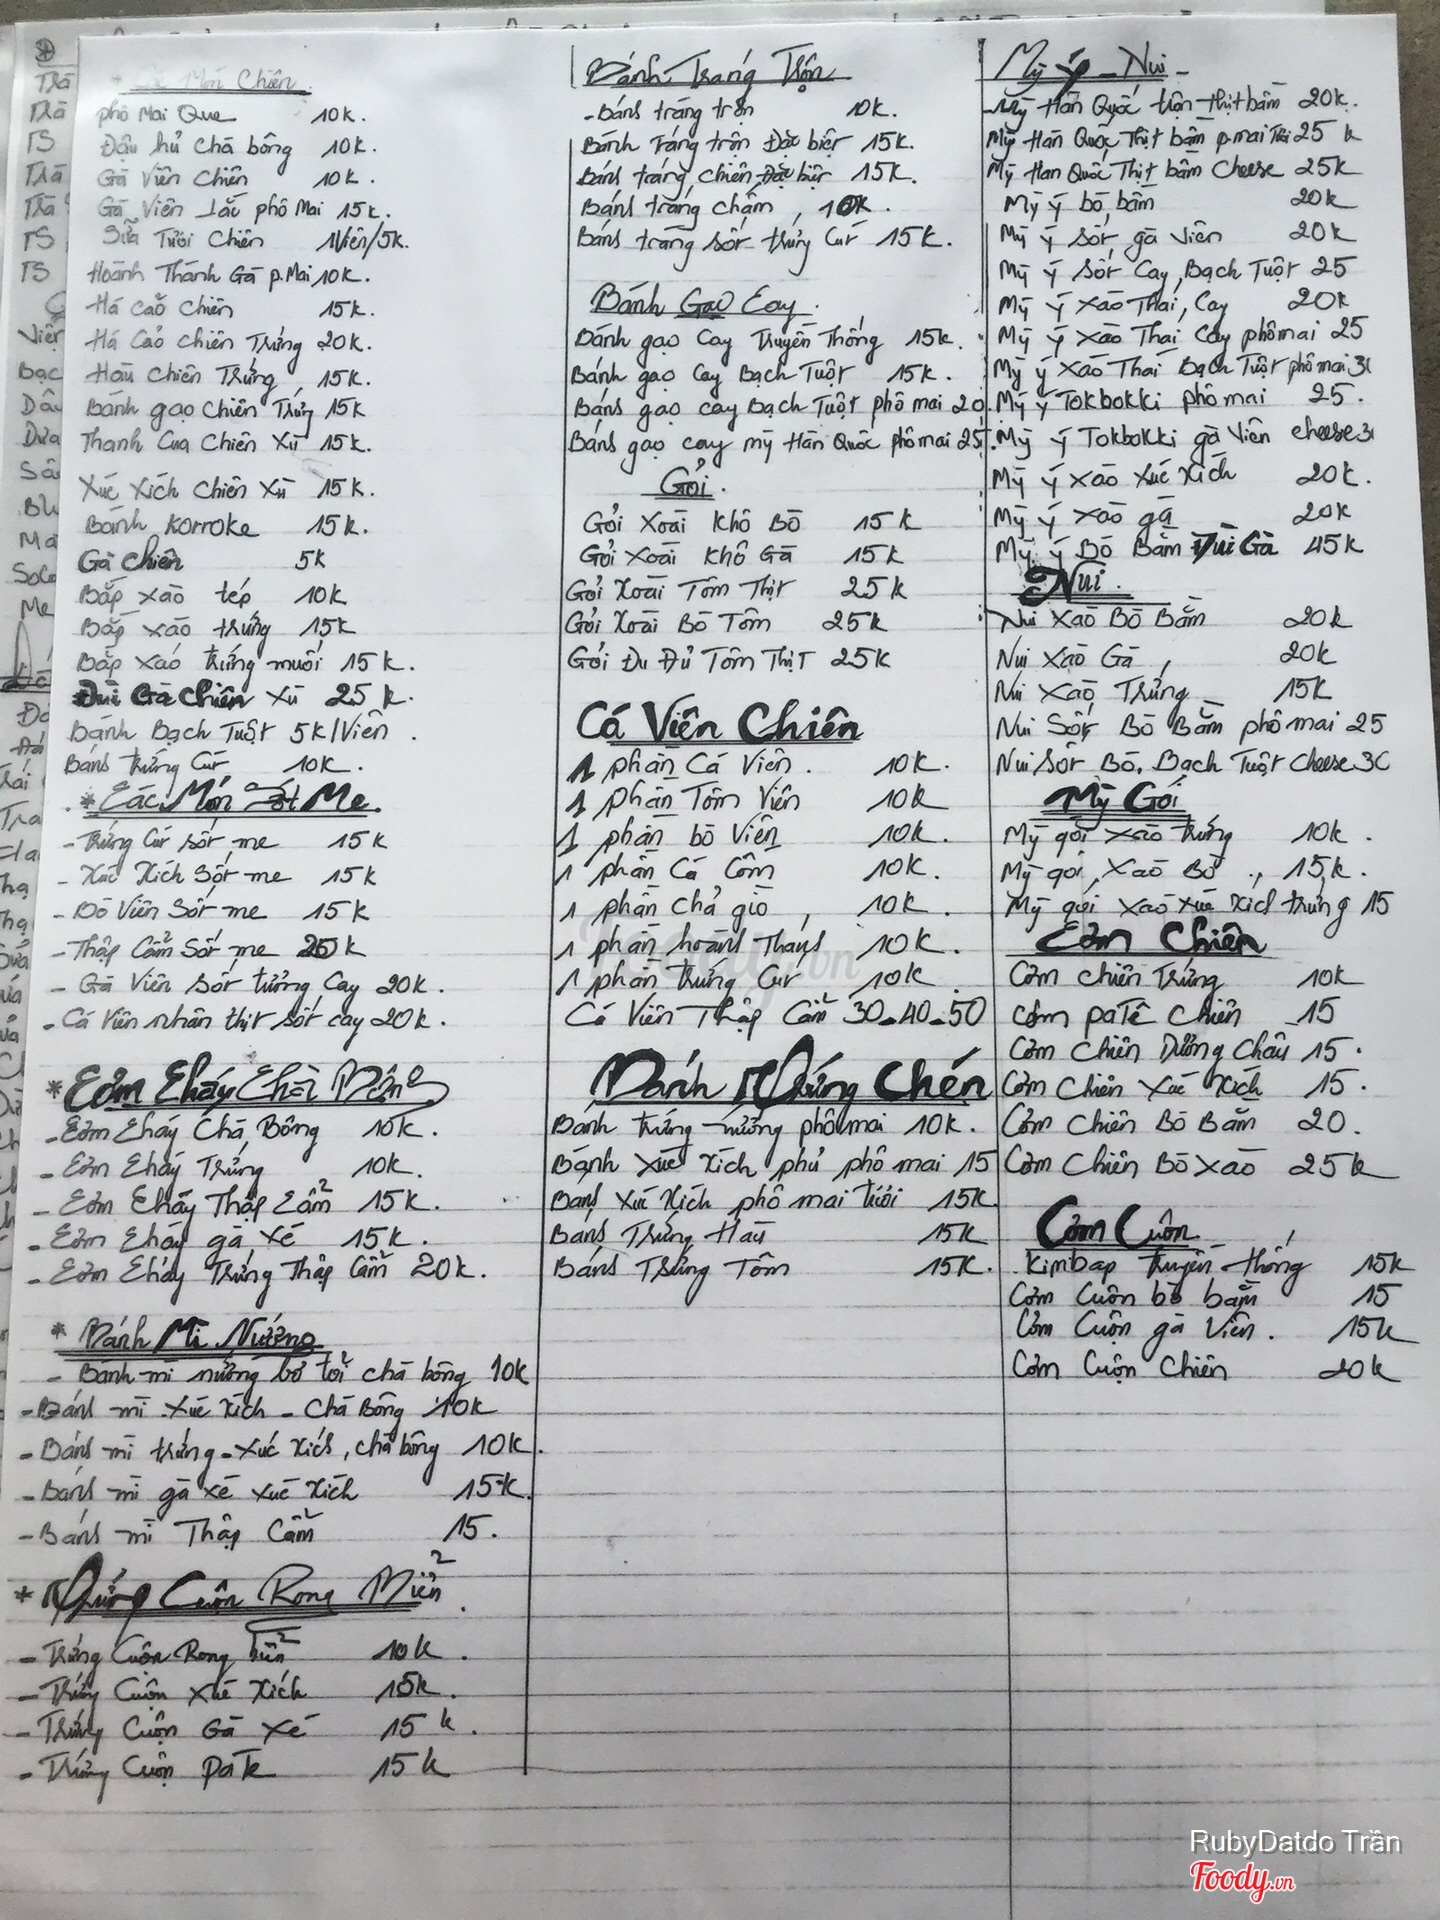 Món Chiên
phô Mai Que 10k.
Đậu hủ chà bông 10k.
Gà Viên Chiên 10k.
Gà Viên Lắc phô Mai 15k.
Sữa Tươi Chiên 1Viên/5k.
Hoành Thánh Gà p.Mai 10k.
Há cảo chiên 15k.
Há Cảo chiên Trứng 20k.
Hàu chiên Trứng 15k.
Bánh gạo chiên Trứng 15k
Thanh Cua Chiên Xù 15k.
Xúc Xích chiên Xù 15k.
Bánh Korroke 15k.
Gà chiên 5k
Bắp xào tép 10k
Bắp xào trứng 15k
Bắp xào trứng muối 15k.
Đùi Gà chiên Xù 25k.
Bánh Bạch Tuột 5k/Viên.
Bánh trứng Cút 10k.
* Các Món Sốt Me
- Trứng Cút sốt me 15k
- Xúc Xích Sốt me 15k
- Bò Viên Sốt me 15k
- Thập Cẩm Sốt me 25k
- Gà Viên sốt tương Cay 20k.
- Cá Viên nhân thịt sốt cay 20k.
* Cơm Cháy Chà Bông
- Cơm Cháy Chà Bông 10k.
- Cơm Cháy Trứng 10k.
- Cơm Cháy Thập Cẩm 15k.
- Cơm Cháy gà xé 15k.
- Cơm Cháy Trứng Thập Cẩm 20k.
* Bánh Mì Nướng
- Bánh mì nướng bơ tỏi chà bông 10k
- Bánh mì Xúc Xích - Chà Bông 10k
- Bánh mì trứng - xúc xích, chà bông 10k.
- Bánh mì gà xé xúc xích 15k.
- Bánh mì Thập Cẩm 15.
* Trứng Cuộn Rong Biển
- Trứng Cuộn Rong biển 10k.
- Trứng Cuộn Xúc Xích 15k.
- Trứng Cuộn Gà Xé 15k.
- Trứng Cuộn paTe 15k
Bánh Tráng Trộn
- Bánh tráng trộn 10k.
Bánh Tráng trộn Đặc biệt 15k.
Bánh tráng chiên Đặc biệt 15k.
Bánh tráng chấm 10k.
Bánh tráng sốt trứng Cút 15k.
Bánh Gạo Cay
Bánh gạo Cay Truyền Thống 15k.
Bánh gạo Cay Bạch Tuột 15k.
Bánh gạo cay Bạch Tuột phô mai 20.
Bánh gạo cay mỳ Hàn Quốc phô mai 25.
Gỏi.
Gỏi Xoài Khô Bò 15k
Gỏi Xoài Khô Gà 15k
Gỏi Xoài Tôm Thịt 25k
Gỏi Xoài Bò Tôm 25k
Gỏi Đu Đủ Tôm Thịt 25k
Cá Viên Chiên
1 phần Cá Viên. 10k.
1 phần Tôm Viên 10k
1 phần bò Viên 10k.
1 phần Cá Cốm 10k.
1 phần chả giò 10k.
1 phần hoành Thánh 10k.
1 phần trứng Cút 10k.
Cá Viên Thập Cẩm 30-40-50
Bánh Trứng Chén
Bánh trứng nướng phô mai 10k.
Bánh Xúc Xích phủ phô mai 15
Bánh Xúc Xích phô mai tươi 15k
Bánh Trứng Hàu 15k
Bánh Trứng Tôm 15k.
Mỳ Ý - Nui -
- Mỳ Hàn Quốc trộn thịt bầm 20k.
Mỳ Hàn Quốc Thịt bầm p.mai Thái 25k
Mỳ Hàn Quốc Thịt bầm Cheese 25k
Mỳ ý bò bầm 20k
Mỳ ý sốt gà viên 20k
Mỳ ý sốt Cay Bạch Tuột 25
Mỳ ý xào Thái, Cay 20k
Mỳ ý xào Thái Cay phô mai 25
Mỳ ý xào Thái Bạch Tuột phô mai 30
Mỳ ý Tokbokki phô mai 25.
Mỳ ý Tokbokki gà Viên cheese 3
Mỳ ý xào xúc xích 20k.
Mỳ ý xào gà 20k
Mỳ Ý Bò Bầm Đùi Gà 45k
Nui.
Nui Xào Bò Bằm 20k
Nui Xào Gà 20k
Nui Xào Trứng 15k
Nui Sốt Bò Bằm phô mai 25
Nui Sốt Bò, Bạch Tuột cheese 30
Mỳ Gói
Mỳ gói xào trứng 10k.
Mỳ gói Xào Bò 15k.
Mỳ gói xào xúc xích trứng 15
Cơm Chiên
Cơm chiên Trứng 10k
Cơm paTê Chiên 15
Cơm Chiên Dương Châu 15.
Cơm Chiên Xúc Xích 15.
Cơm Chiên Bò Bằm 20.
Cơm Chiên Bò Xào 25k
Cơm Cuộn
Kimbap truyền thống 15k
Cơm Cuộn bò bằm 15
Cơm Cuộn gà Viên. 15k
Cơm Cuộn Chiên 20k
Foody.vn
RubyDatdo Trần
Foody.vn